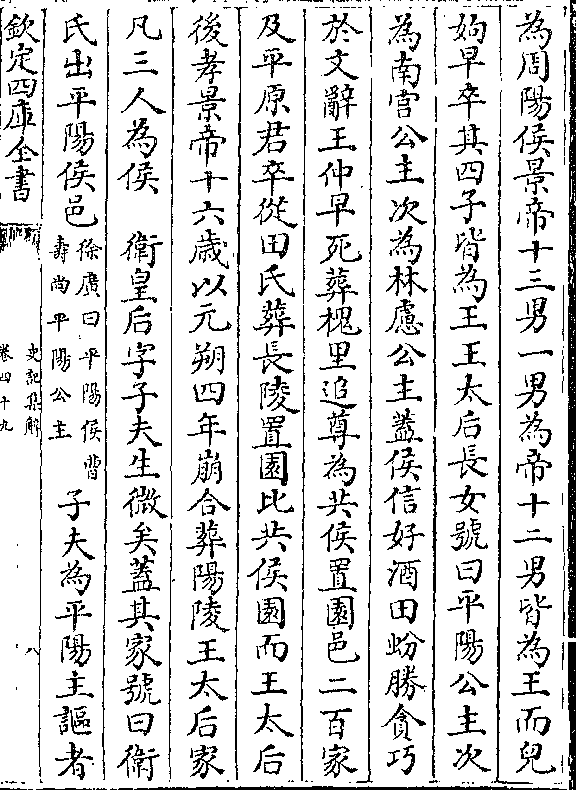 為周陽侯景帝十三男一男為帝十二男皆為王而兒
姁早卒其四子皆為王王太后長女號曰平陽公主次
為南宮公主次為林慮公主蓋侯信好酒田蚡勝貪巧
於文辭王仲早死葬槐里追尊為共侯置園邑二百家
及平原君卒從田氏葬長陵置園比共侯園而王太后
後孝景帝十六歲以元朔四年崩合葬陽陵王太后家
凡三人為侯 衛皇后字子夫生微矣蓋其家號曰衛
氏出平陽侯邑徐廣曰平陽侯曹壽尚平陽公主子夫為平陽主謳者
欽定四庫全書
史記集解
卷四十九
八